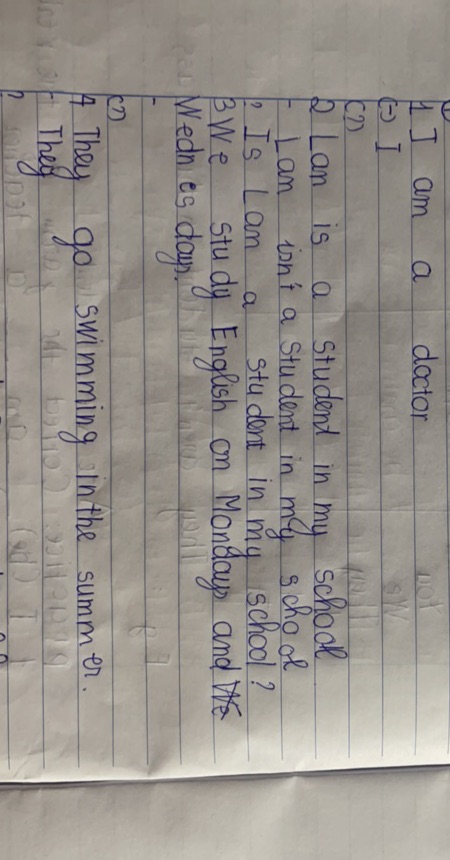 1 I am a doctor
(-) I
(?)
2 Lan is a student in my school
- Lan isn't a student in my school
? Is Lan a student in my school?
3 We study English on Mondays and
Wednesdays.
-
(?)
4 They go swimming in the summer.
- They
?